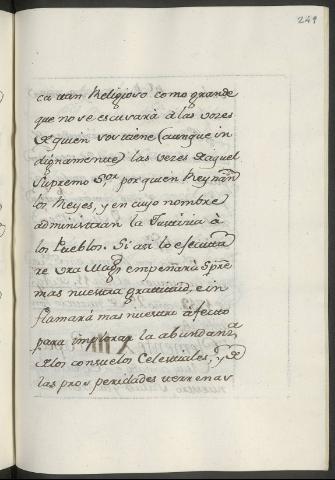 249
ca tan Religioso como grande
que no se escusará á las vozes
de quien sostiene (aunque in
dignamente) las vezes de aquel
Supremo S.or por quien Reynan
los Reyes, y en cuyo nombre
administran la Justizia à
los Pueblos. Si asi lo executa
re Vra Mag.d empeñará sp̃re
mas nuestra gratitud, e in
flamará mas nuestro afecto
para implorar la abundanz.a
de los consuelos Celestiales, y de
las prosperidades terrenas